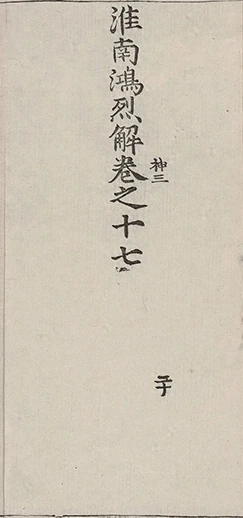 淮南鴻烈解卷之十七
神三